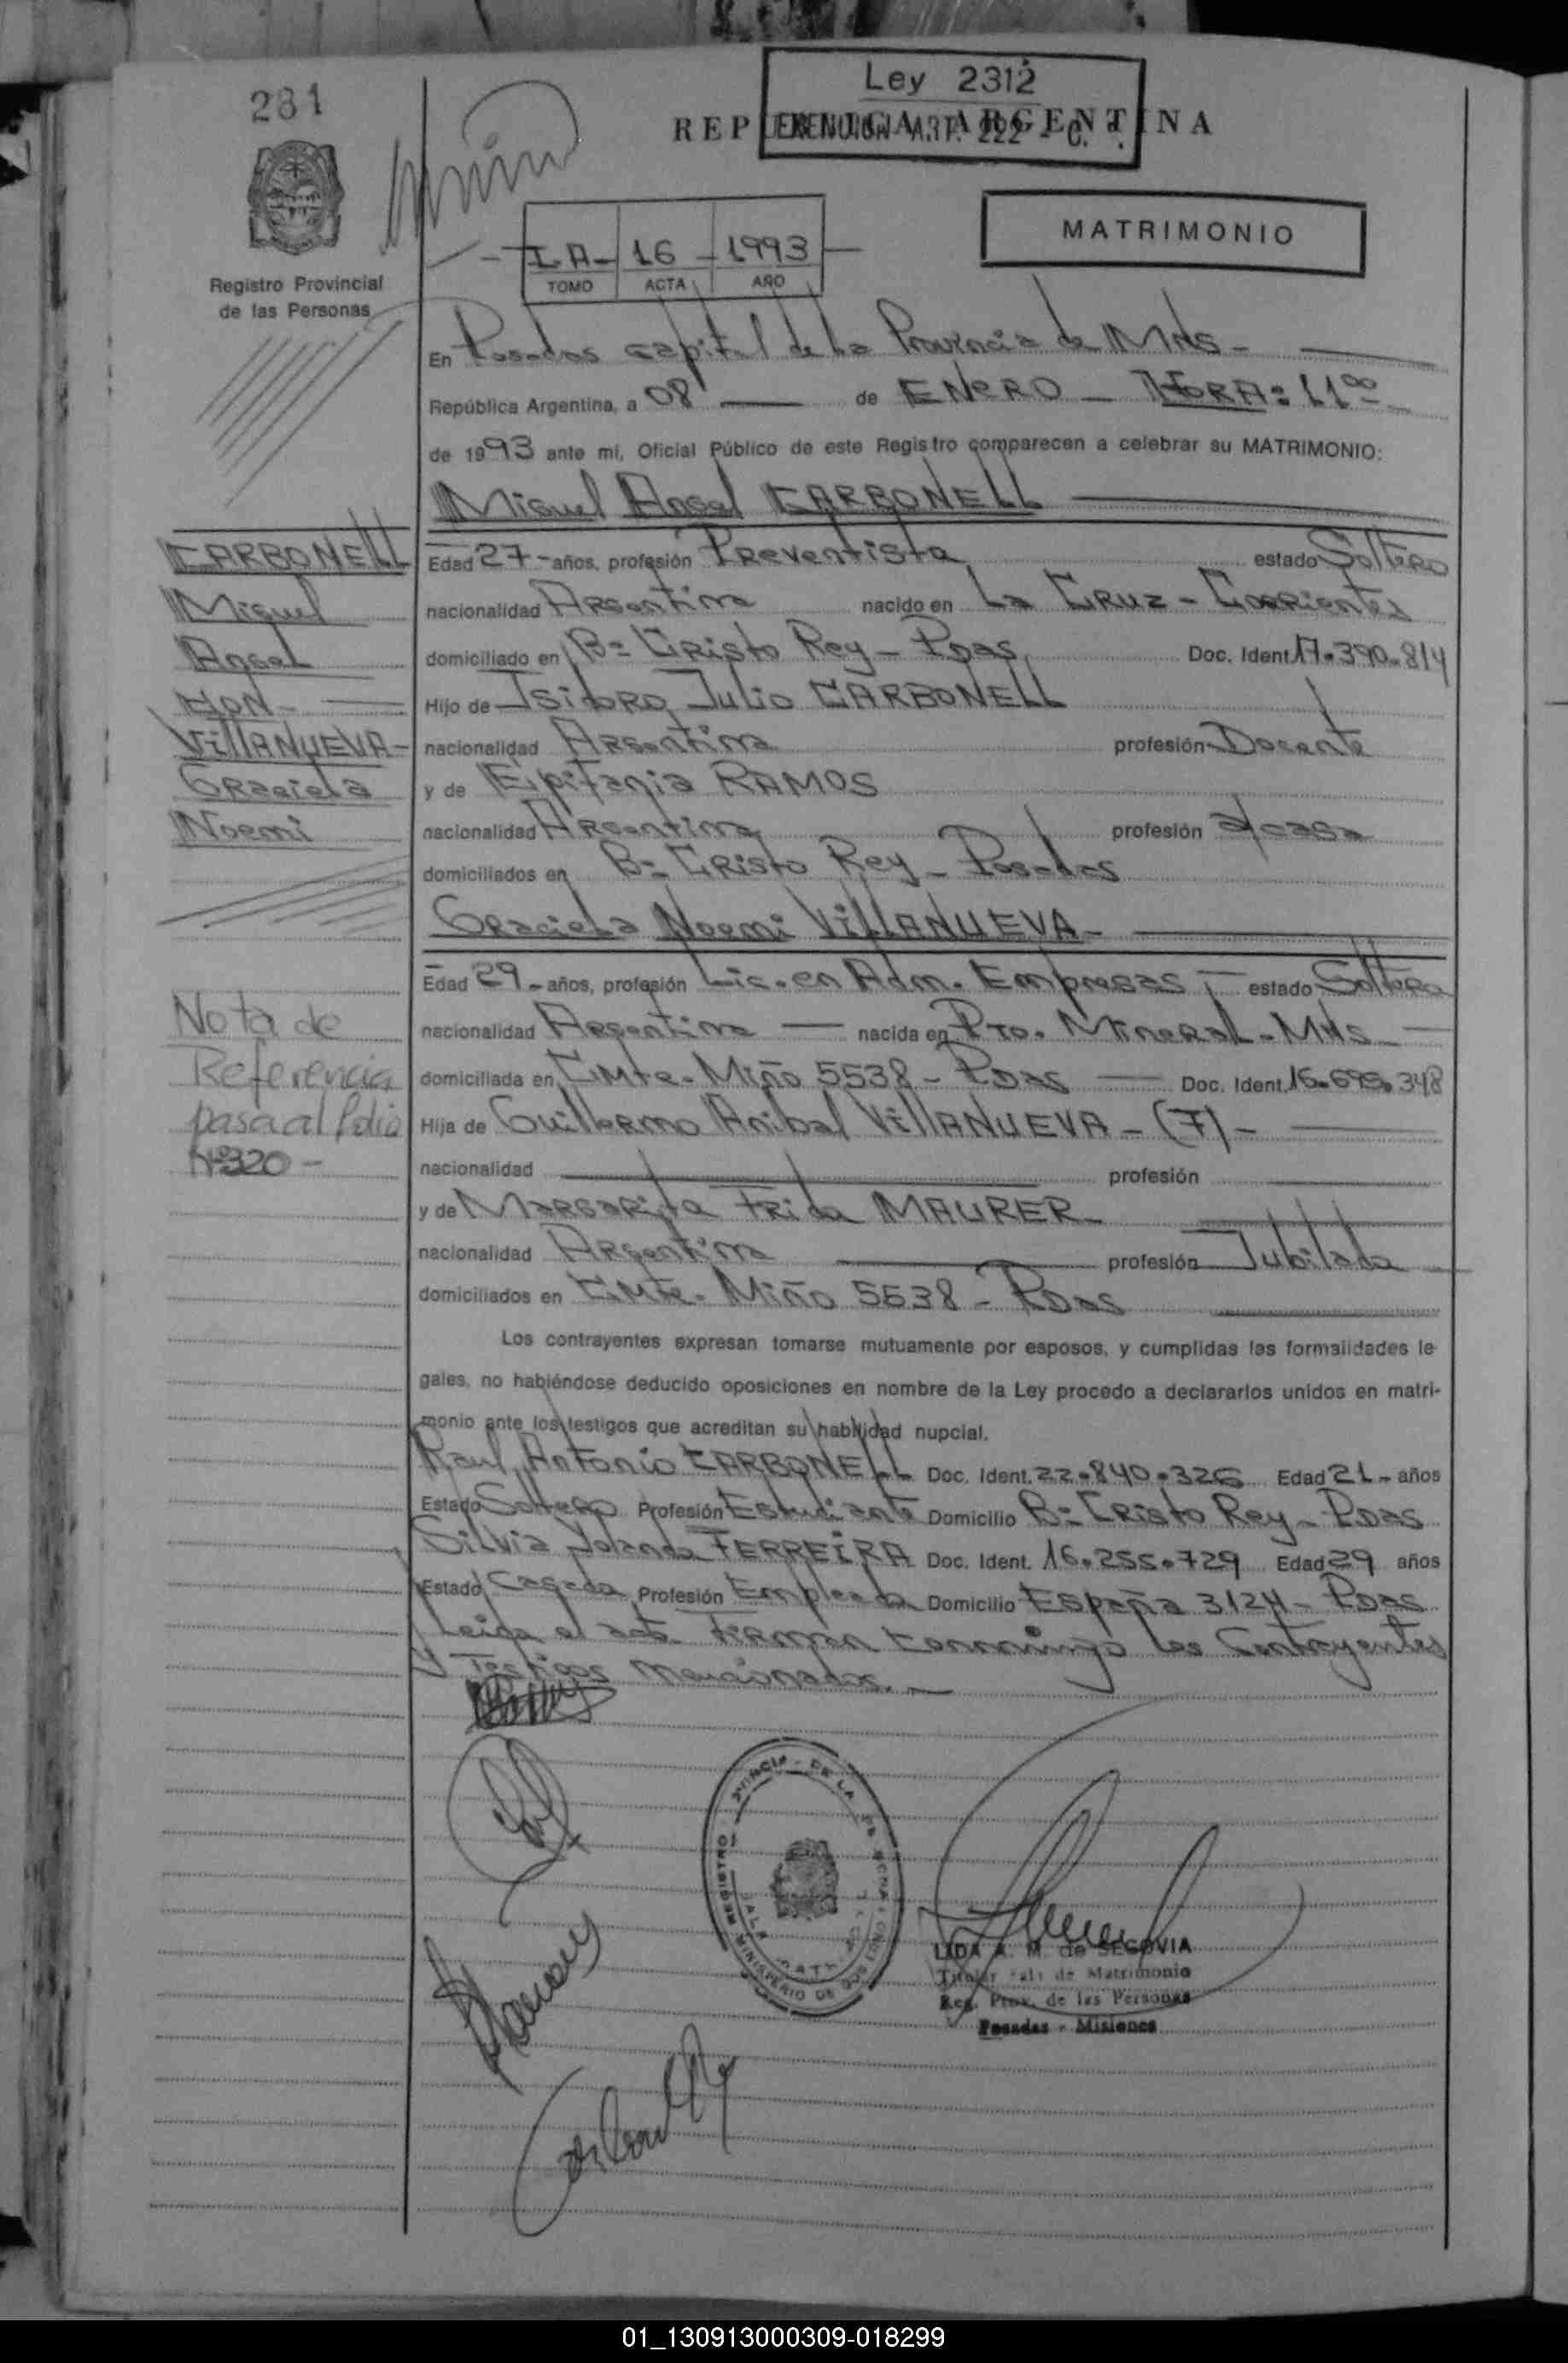 281
Ley 2312
REPUBLICA ARGENTINA
EXENCION ART. 222 - C. .
MATRIMONIO
I-A- 16 - 1993
TOMO ACTA AÑO
Registro Provincial
de las Personas
En Posadas capital de la Provincia de Mnes-
República Argentina, a 08 de ENERO - HORA: 11 00
de 1993 ante mí, Oficial Público de este Registro comparecen a celebrar su MATRIMONIO:
Miguel Angel CARBONELL
Edad 27- años, profesión Preventista estado Soltero
nacionalidad Argentina nacido en La Cruz - Corrientes
domiciliado en Bº Cristo Rey - Pdas Doc. Ident. 17.390.814
Hijo de Isidro Julio CARBONELL
nacionalidad Argentina profesión Docente
y de Epifania RAMOS
nacionalidad Argentina profesión a/casa
domiciliados en Bº Cristo Rey - Posadas
Graciela Noemi VillANUEVA-
Edad 29- años, profesión Lic. en Adm. Empresas estado Soltera
nacionalidad Argentina nacida en Pto. Mineral - Mnes
domiciliada en Cmte. Miño 5538 - Pdas Doc. Ident. 16.695.348
Hija de Guillermo Anibal VillANUEVA - (F) -
nacionalidad profesión
y de Margarita Frida MAURER
nacionalidad Argentina profesión Jubilada
domiciliados en Cmte. Miño 5538 - Pdas
Los contrayentes expresan tomarse mutuamente por esposos, y cumplidas las formalidades le-
gales, no habiéndose deducido oposiciones en nombre de la Ley procedo a declararlos unidos en matri-
monio ante los testigos que acreditan su habilidad nupcial.
Raul Antonio CARBONELL Doc. Ident. 22.840.326 Edad 21- años
Estado Soltero Profesión Estudiante Domicilio Bº Cristo Rey - Pdas
Silvia Yolanda FERREIRA Doc. Ident. 16.255.729 Edad 29 años
Estado Casada Profesión Empleada Domicilio España 3124 - Pdas
Leida el acta Firman conmigo los Contrayentes
y Testigos mencionados.
CARBONELL
Miguel
Angel
CON-
VillANUEVA-
Graciela
Noemi
Nota de
Referencia
pasa al folio
Nº 320-
LIDA A. M. de SEGOVIA
Titular de Matrimonio
Reg. Prov. de las Personas
Posadas - Misiones
01_130913000309-018299